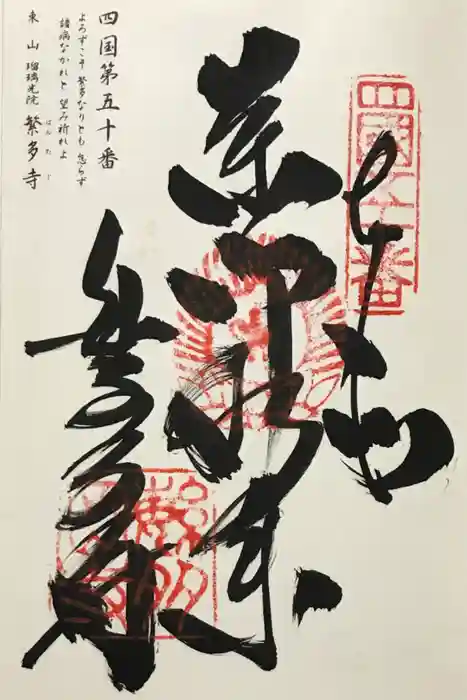 四國五十番
奉納
薬師如来
繁多寺
四国第五十番
よろずこそ 繁多なりとも 怠らず
諸病なかれと 望み祈れよ
東山 瑠璃光院 繁多寺
はんたじ